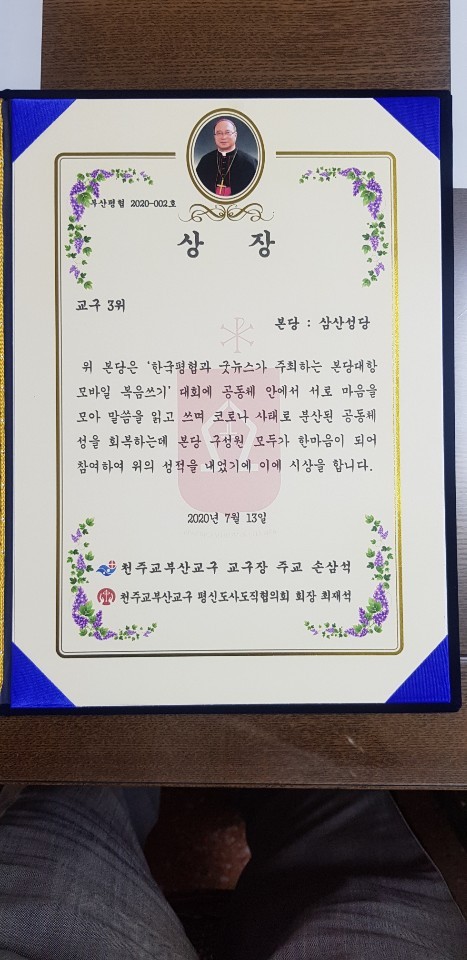 부산평협 2020-002호
상 장
교구 3위
본당 : 삼산성당
위 본당은 '한국평협과 굿뉴스가 주최하는 본당대항
모바일 복음쓰기' 대회에 공동체 안에서 서로 마음을
모아 말씀을 읽고 쓰며 코로나 사태로 분산된 공동체
성을 회복하는데 본당 구성원 모두가 한마음이 되어
참여하여 위의 성적을 내었기에 이에 시상을 합니다.
2020년 7월 13일
천주교부산교구 교구장 주교 손삼석
천주교부산교구 평신도사도직협의회 회장 최재석